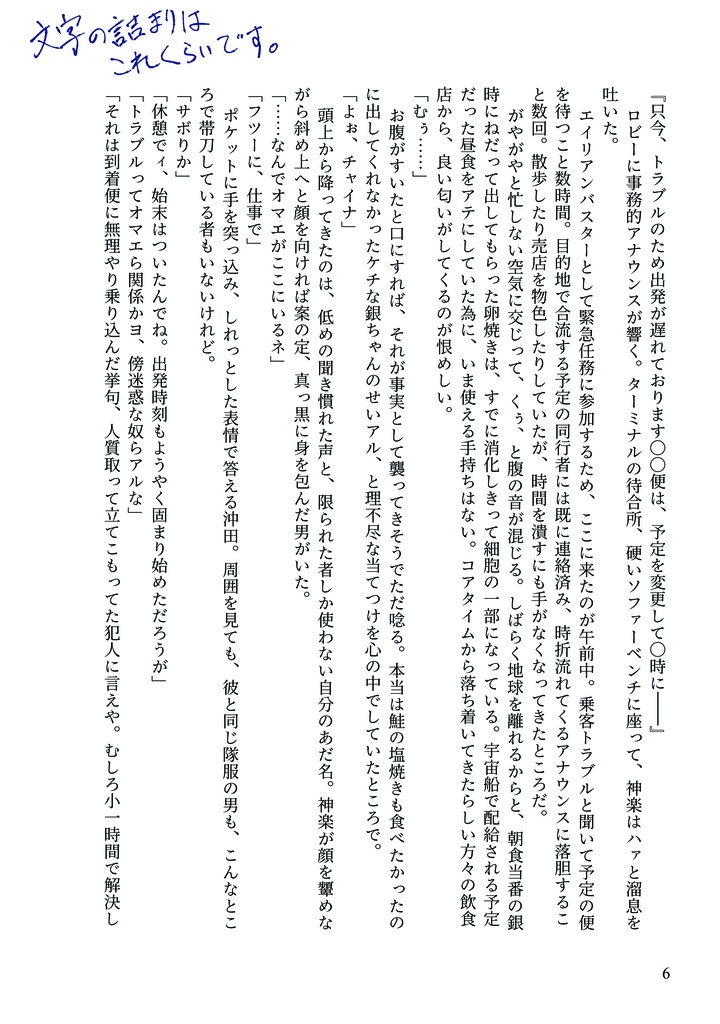 文字の詰まりは
これくらいです。
『只今、トラブルのため出発が遅れております〇〇便は、予定を変更して〇時に――』
　ロビーに事務的アナウンスが響く。ターミナルの待合所、硬いソファーベンチに座って、神楽はハァと溜息を
吐いた。
　エイリアンバスターとして緊急任務に参加するため、ここに来たのが午前中。乗客トラブルと聞いて予定の便
を待つこと数時間。目的地で合流する予定の同行者には既に連絡済み、時折流れてくるアナウンスに落胆するこ
と数回。散歩したり売店を物色したりしていたが、時間を潰すにも手がなくなってきたところだ。
　がやがやと忙しない空気に交じって、くぅ、と腹の音が混じる。しばらく地球を離れるからと、朝食当番の銀
時にねだって出してもらった卵焼きは、すでに消化しきって細胞の一部になっている。宇宙船で配給される予定
だった昼食をアテにしていた為に、いま使える手持ちはない。コアタイムから落ち着いてきたらしい方々の飲食
店から、良い匂いがしてくるのが恨めしい。
「むぅ……」
　お腹がすいたと口にすれば、それが事実として襲ってきそうでただ唸る。本当は鮭の塩焼きも食べたかったの
に出してくれなかったケチな銀ちゃんのせいアル、と理不尽な当てつけを心の中でしていたところで。
「よぉ、チャイナ」
　頭上から降ってきたのは、低めの聞き慣れた声と、限られた者しか使わない自分のあだ名。神楽が顔を顰めな
がら斜め上へと顔を向ければ案の定、真っ黒に身を包んだ男がいた。
「……なんでオマエがここにいるネ」
「フツーに、仕事で」
　ポケットに手を突っ込み、しれっとした表情で答える沖田。周囲を見ても、彼と同じ隊服の男も、こんなとこ
ろで帯刀している者もいないけれど。
「サボりか」
「休憩でィ、始末はついたんでね。出発時刻もようやく固まり始めただろうが」
「トラブルってオマエら関係かヨ、傍迷惑な奴らアルな」
「それは到着便に無理やり乗り込んだ挙句、人質取って立てこもってた犯人に言えや。むしろ小一時間で解決し
6